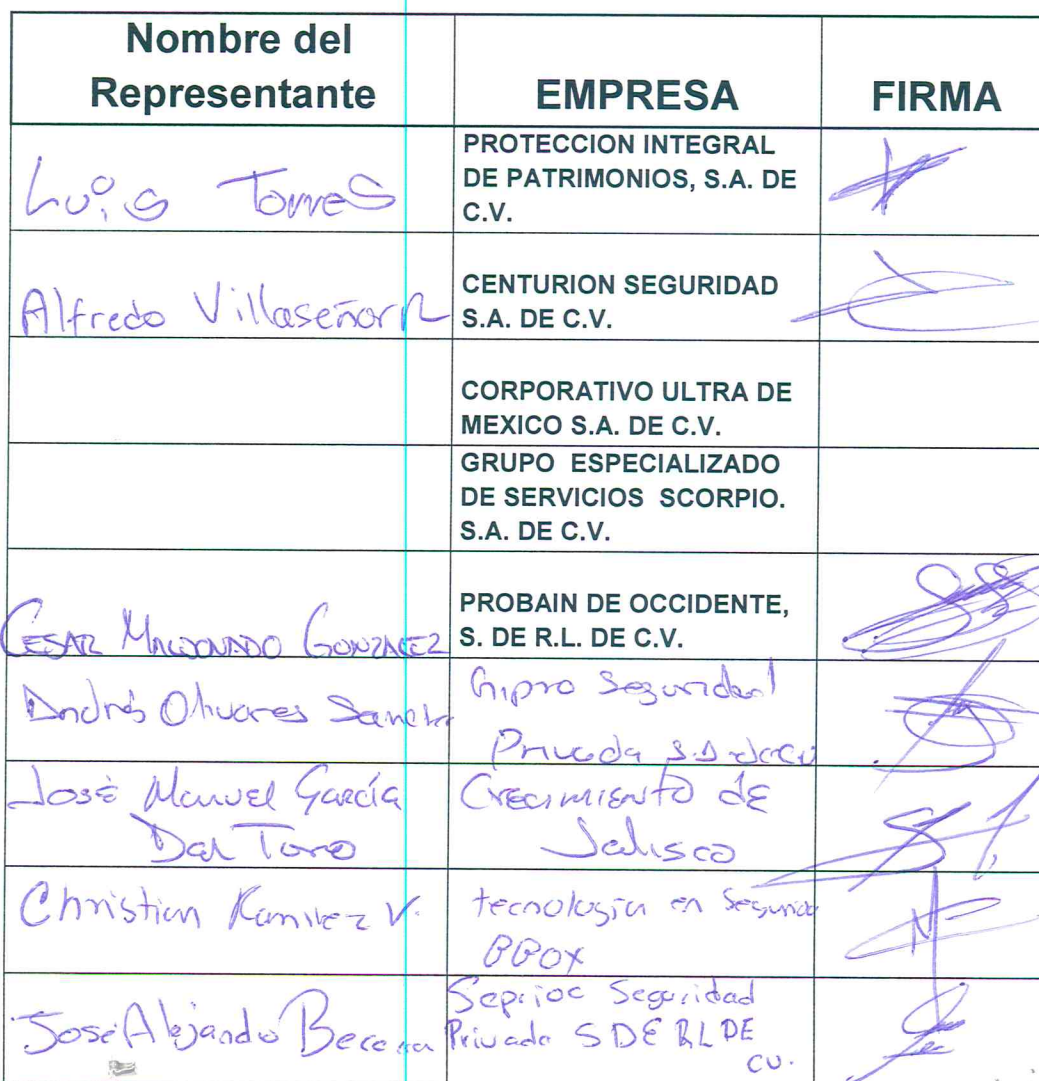 Nombre del
Representante
EMPRESA
FIRMA
Luis Torres
PROTECCION INTEGRAL
DE PATRIMONIOS, S.A. DE
C.V.
Alfredo Villaseñor R
CENTURION SEGURIDAD
S.A. DE C.V.
CORPORATIVO ULTRA DE
MEXICO S.A. DE C.V.
GRUPO ESPECIALIZADO
DE SERVICIOS SCORPIO.
S.A. DE C.V.
CESAR MALDONADO GONZALEZ
PROBAIN DE OCCIDENTE,
S. DE R.L. DE C.V.
Andrés Olivares
Seguridad
Privada S.A. de CV
José Manuel García
Del Toro
Crecimiento de
Jalisco
Christian Ramirez V.
tecnología en
BBOX
José Alejandro Becerra
Seguridad
Privada S DE RL DE
CV.